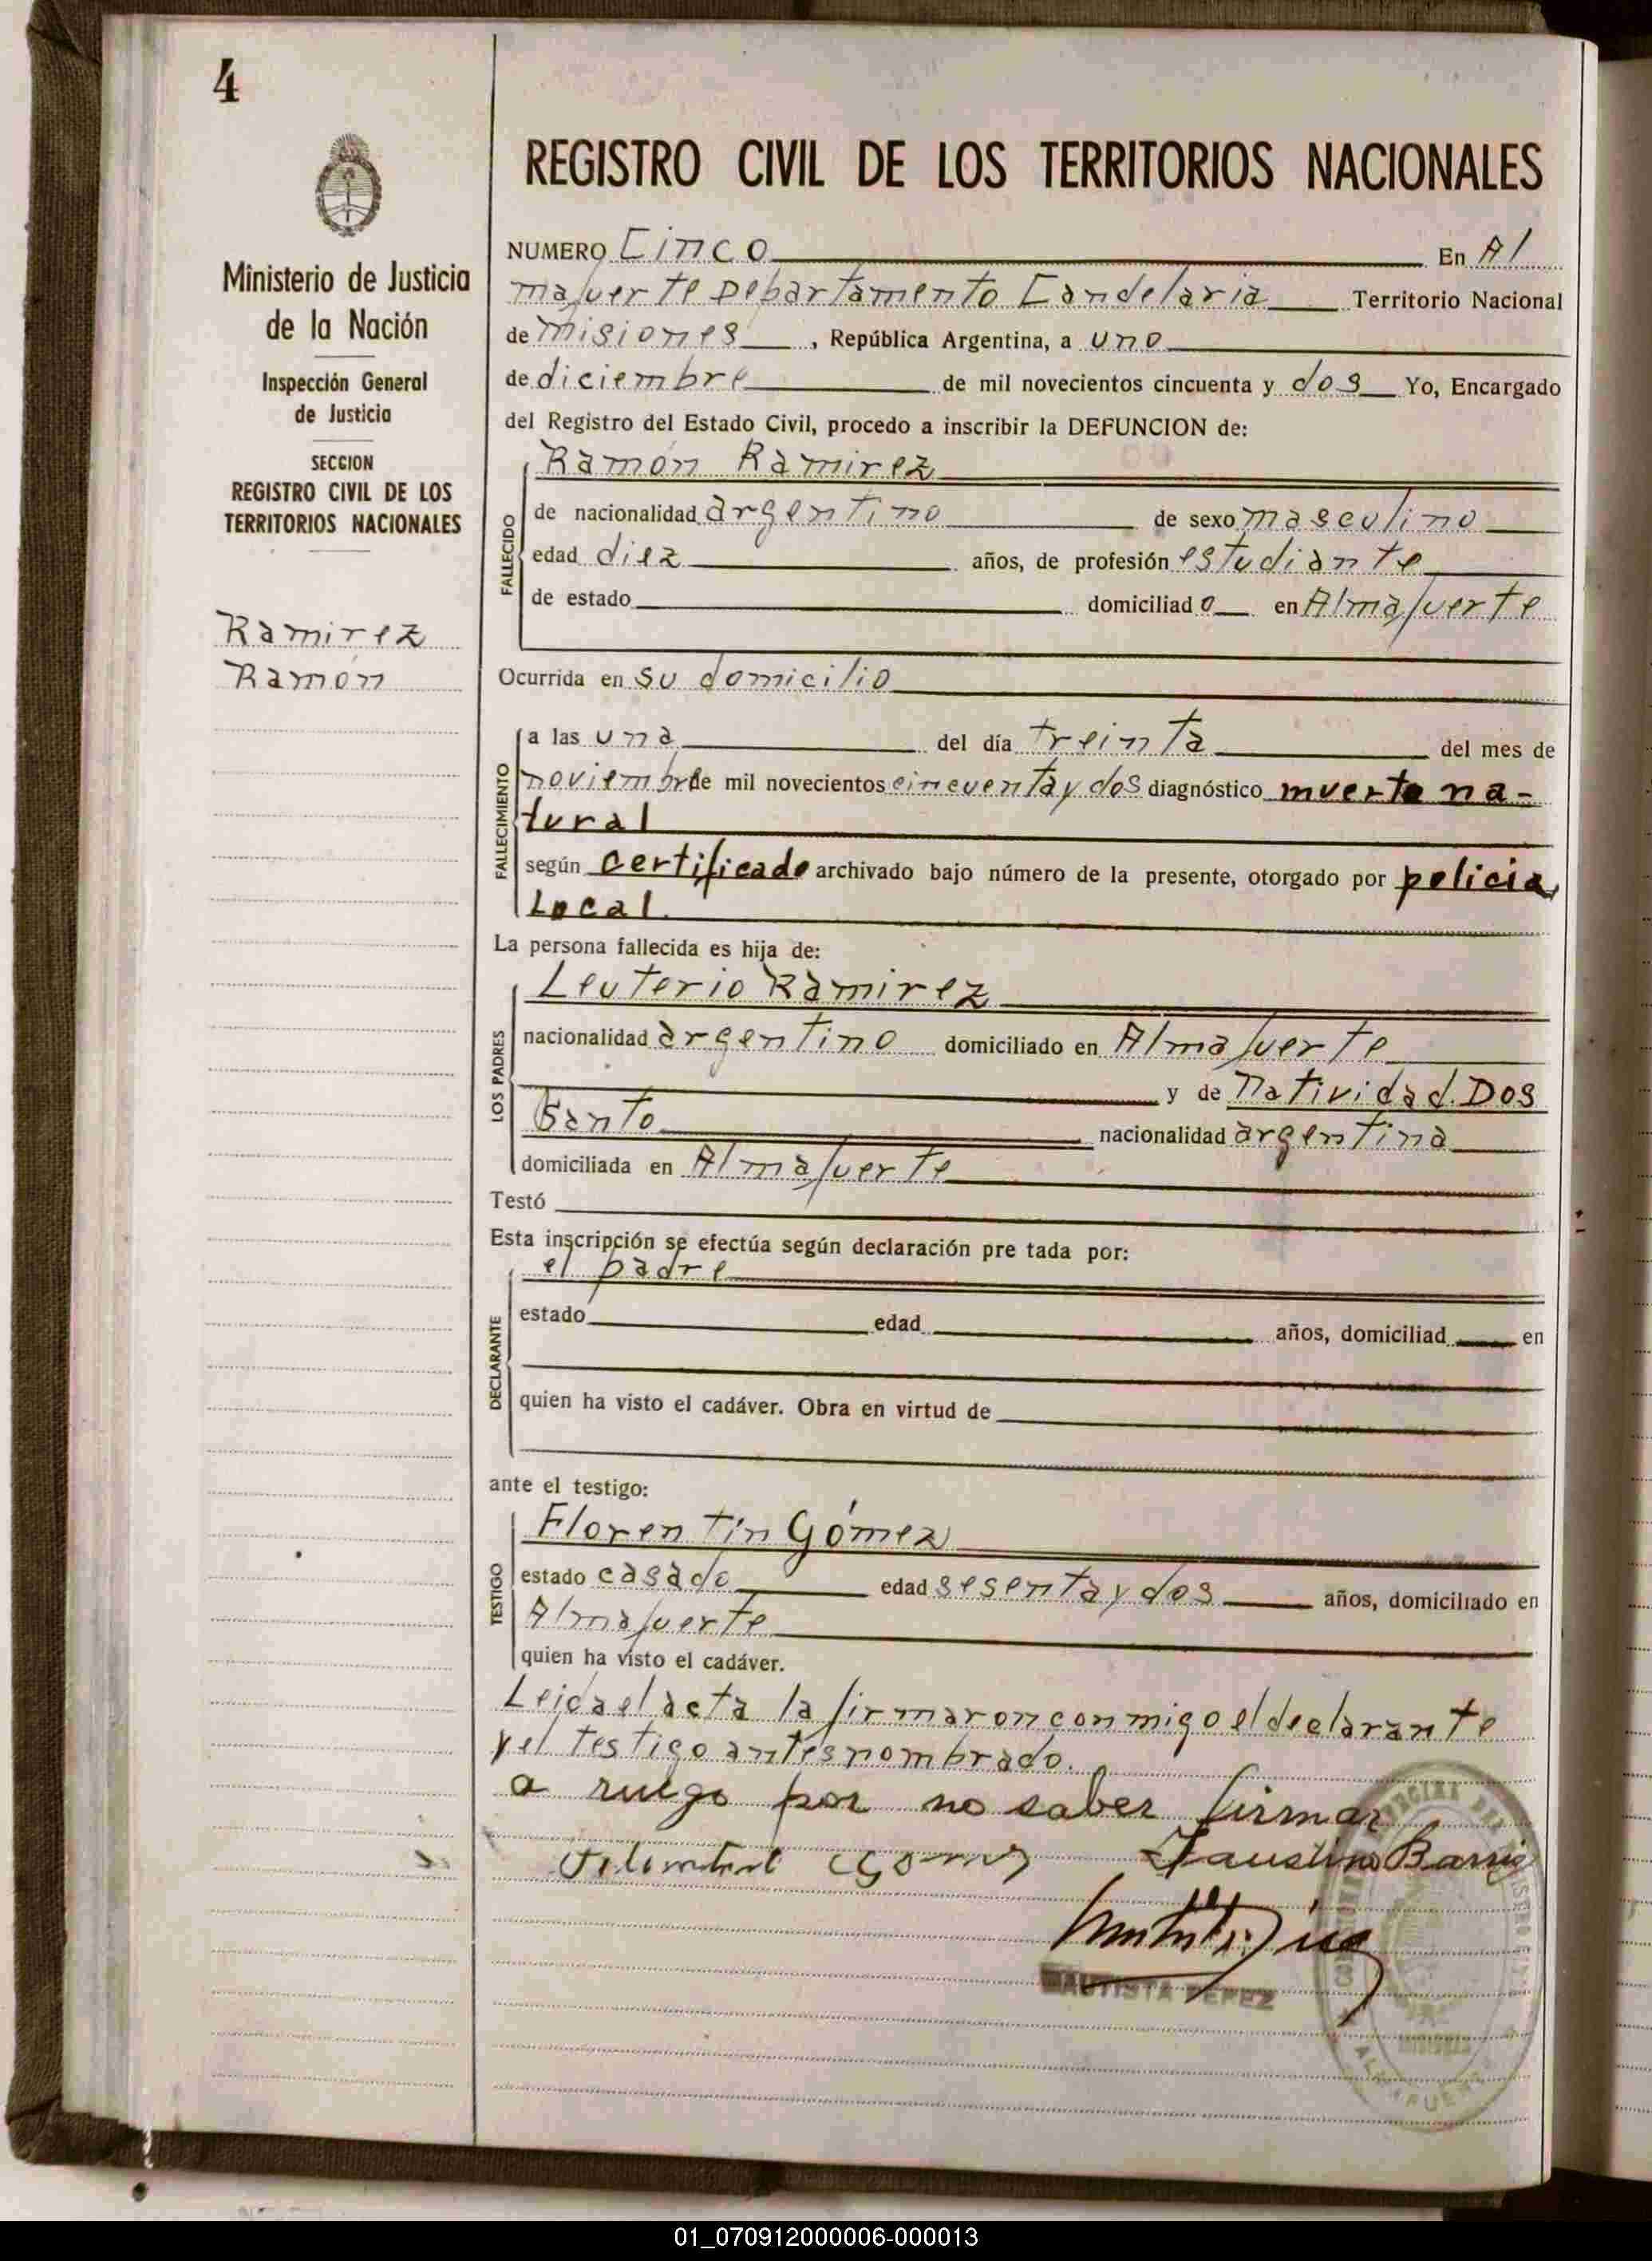 4
Ministerio de Justicia
de la Nación
Inspección General
de Justicia
SECCION
REGISTRO CIVIL DE LOS
TERRITORIOS NACIONALES
Ramirez
Ramón
REGISTRO CIVIL DE LOS TERRITORIOS NACIONALES
NUMERO Cinco En Al
mafuerte Departamento Candelaria Territorio Nacional
de misiones, República Argentina, a uno
de diciembre de mil novecientos cincuenta y dos Yo, Encargado
del Registro del Estado Civil, procedo a inscribir la DEFUNCION de:
Ramón Ramirez
FALLECIDO
de nacionalidad argentino de sexo masculino
edad diez años, de profesión estudiante
de estado domiciliado en Almafuerte
Ocurrida en su domicilio
FALLECIMIENTO
a las una del día treinta del mes de
noviembre de mil novecientos cincuenta y dos diagnóstico muerte na-
tural
según certificado archivado bajo número de la presente, otorgado por policia
Local.
La persona fallecida es hija de:
LOS PADRES
Leuterio Ramirez
nacionalidad argentino domiciliado en Almafuerte
y de Natividad Dos
Santo nacionalidad argentina
domiciliada en Almafuerte
Testó
Esta inscripción se efectúa según declaración pre tada por:
DECLARANTE
el padre
estado edad años, domiciliad en
quien ha visto el cadáver. Obra en virtud de
ante el testigo:
TESTIGO
Florentín Gómez
estado casado edad sesenta y dos años, domiciliado en
Almafuerte
quien ha visto el cadáver.
Leida el acta la firmaron conmigo el declarante
y el testigo antes nombrado.
a ruego por no saber firmar
Faustino
BAUTISTA PEREZ
ALMAFUERTE
01_070912000006-000013